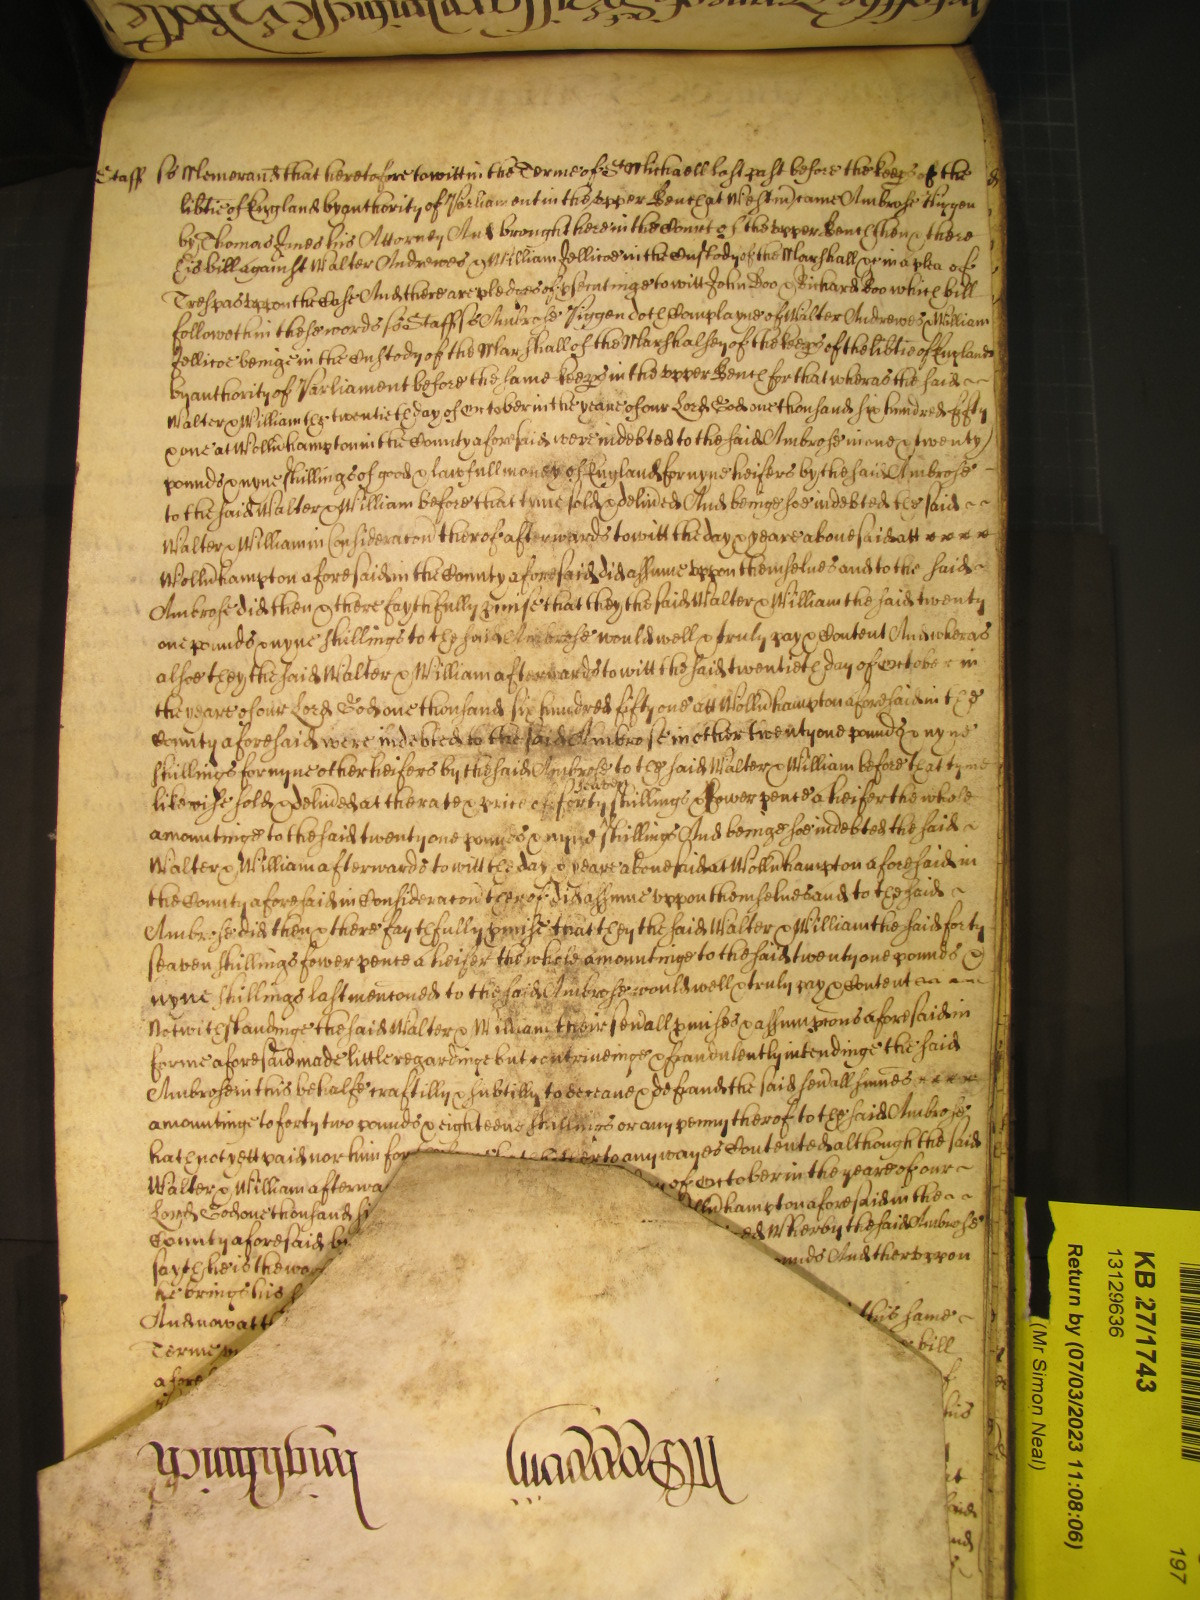 Staff ss Memorand that heretofore to witt in the Terme of St Michaell last past before the keeps of the
libtie of England by authority of Parliament in the upper Bench at Westm came Ambrose Piggen
by Thomas Jones his Attorney And brought here in the Court of the upper Bench then & there
his bill against Walter Andrewes & William Jellicoe in the Custody of the Marshall &c in a plea of
Trespas uppon the Case And there are pledges of psecutinge to witt John Doo & Richard Roo which bill
followeth in these words ss Staff ss Ambrose Piggen doth Complayne of Walter Andrewes & William
Jellicoe beinge in the Custody of the Marshall of the Marshalsey of the keeps of the libtie of England
by authority of Parliament before the same keeps in the upper Bench for that wheras the said
Walter & William the twentieth day of October in the yeare of our Lord God one thousand six hundred fifty
& one at Wollvhampton in the County aforesaid were indebted to the said Ambrose in one & twenty
pounds & nyne shillings of good & lawfull money of England for nyne heifers by the said Ambrose
to the said Walter & William before that tyme sold & delived And beinge soe indebted the said
Walter & William in Consideracon therof afterwards to witt the day & yeare abovesaid att
Wollvhampton aforesaid in the County aforesaid did assume uppon themselves and to the said
Ambrose did then & there faythfully pmise that they the said Walter & William the said twenty
one pounds & nyne shillings to the said Ambrose would well & truly pay & Content And wheras
alsoe they the said Walter & William afterwards to witt the said twentieth day of October in
the yeare of our Lord God one thousand six hundred fifty one att Wollvhampton aforesaid in the
County aforesaid were indebted to the said Ambrose in other twenty one pounds & nyne
shillings for nyne other heifers by the said Ambrose to the said Walter & William before that tyme
likewise sold & delived at the rate & price of forty seaven shillings & fower pence a heifer the whole
amountinge to the said twenty one pounds & nyne shillings And beinge soe indebted the said
Walter & William afterwards to witt the day & yeare abovesaid at Wollvhampton aforesaid in
the County aforesaid in Consideracon therof did assume uppon themselves and to the said
Ambrose did then & there faythfully pmise that they the said Walter & William the said forty
seaven shillings fower pence a heifer the whole amountinge to the said twenty one pounds &
nyne shillings last mencioned to the said Ambrose would well & truly pay & Content
Notwithstandinge the said Walter & William their sevall pmises & assumpcons aforesaid in
forme aforesaid made little regardinge but contriveinge & fraudulently intendinge the said
Ambrose in this behalfe craftilly & subtilly to deceave & defraud the said sevall summes
amountinge to forty two pounds & eighteene shillings or any penny therof to the said Ambrose
hath not yett paid nor him for to any wayes Contented although the said
Walter & William afterwa of October in the yeare of our
Lord God one thousand si llvhampton aforesaid in the
County aforesaid by ed Wherby the said Ambrose
sayth he is the wor unds And theruppon
he brings his
And now att th this same
Terme bill
afore
his
said
KB 27/1743
13129636
Return by (07/03/2023 11:08:06)
(Mr Simon Neal)
197